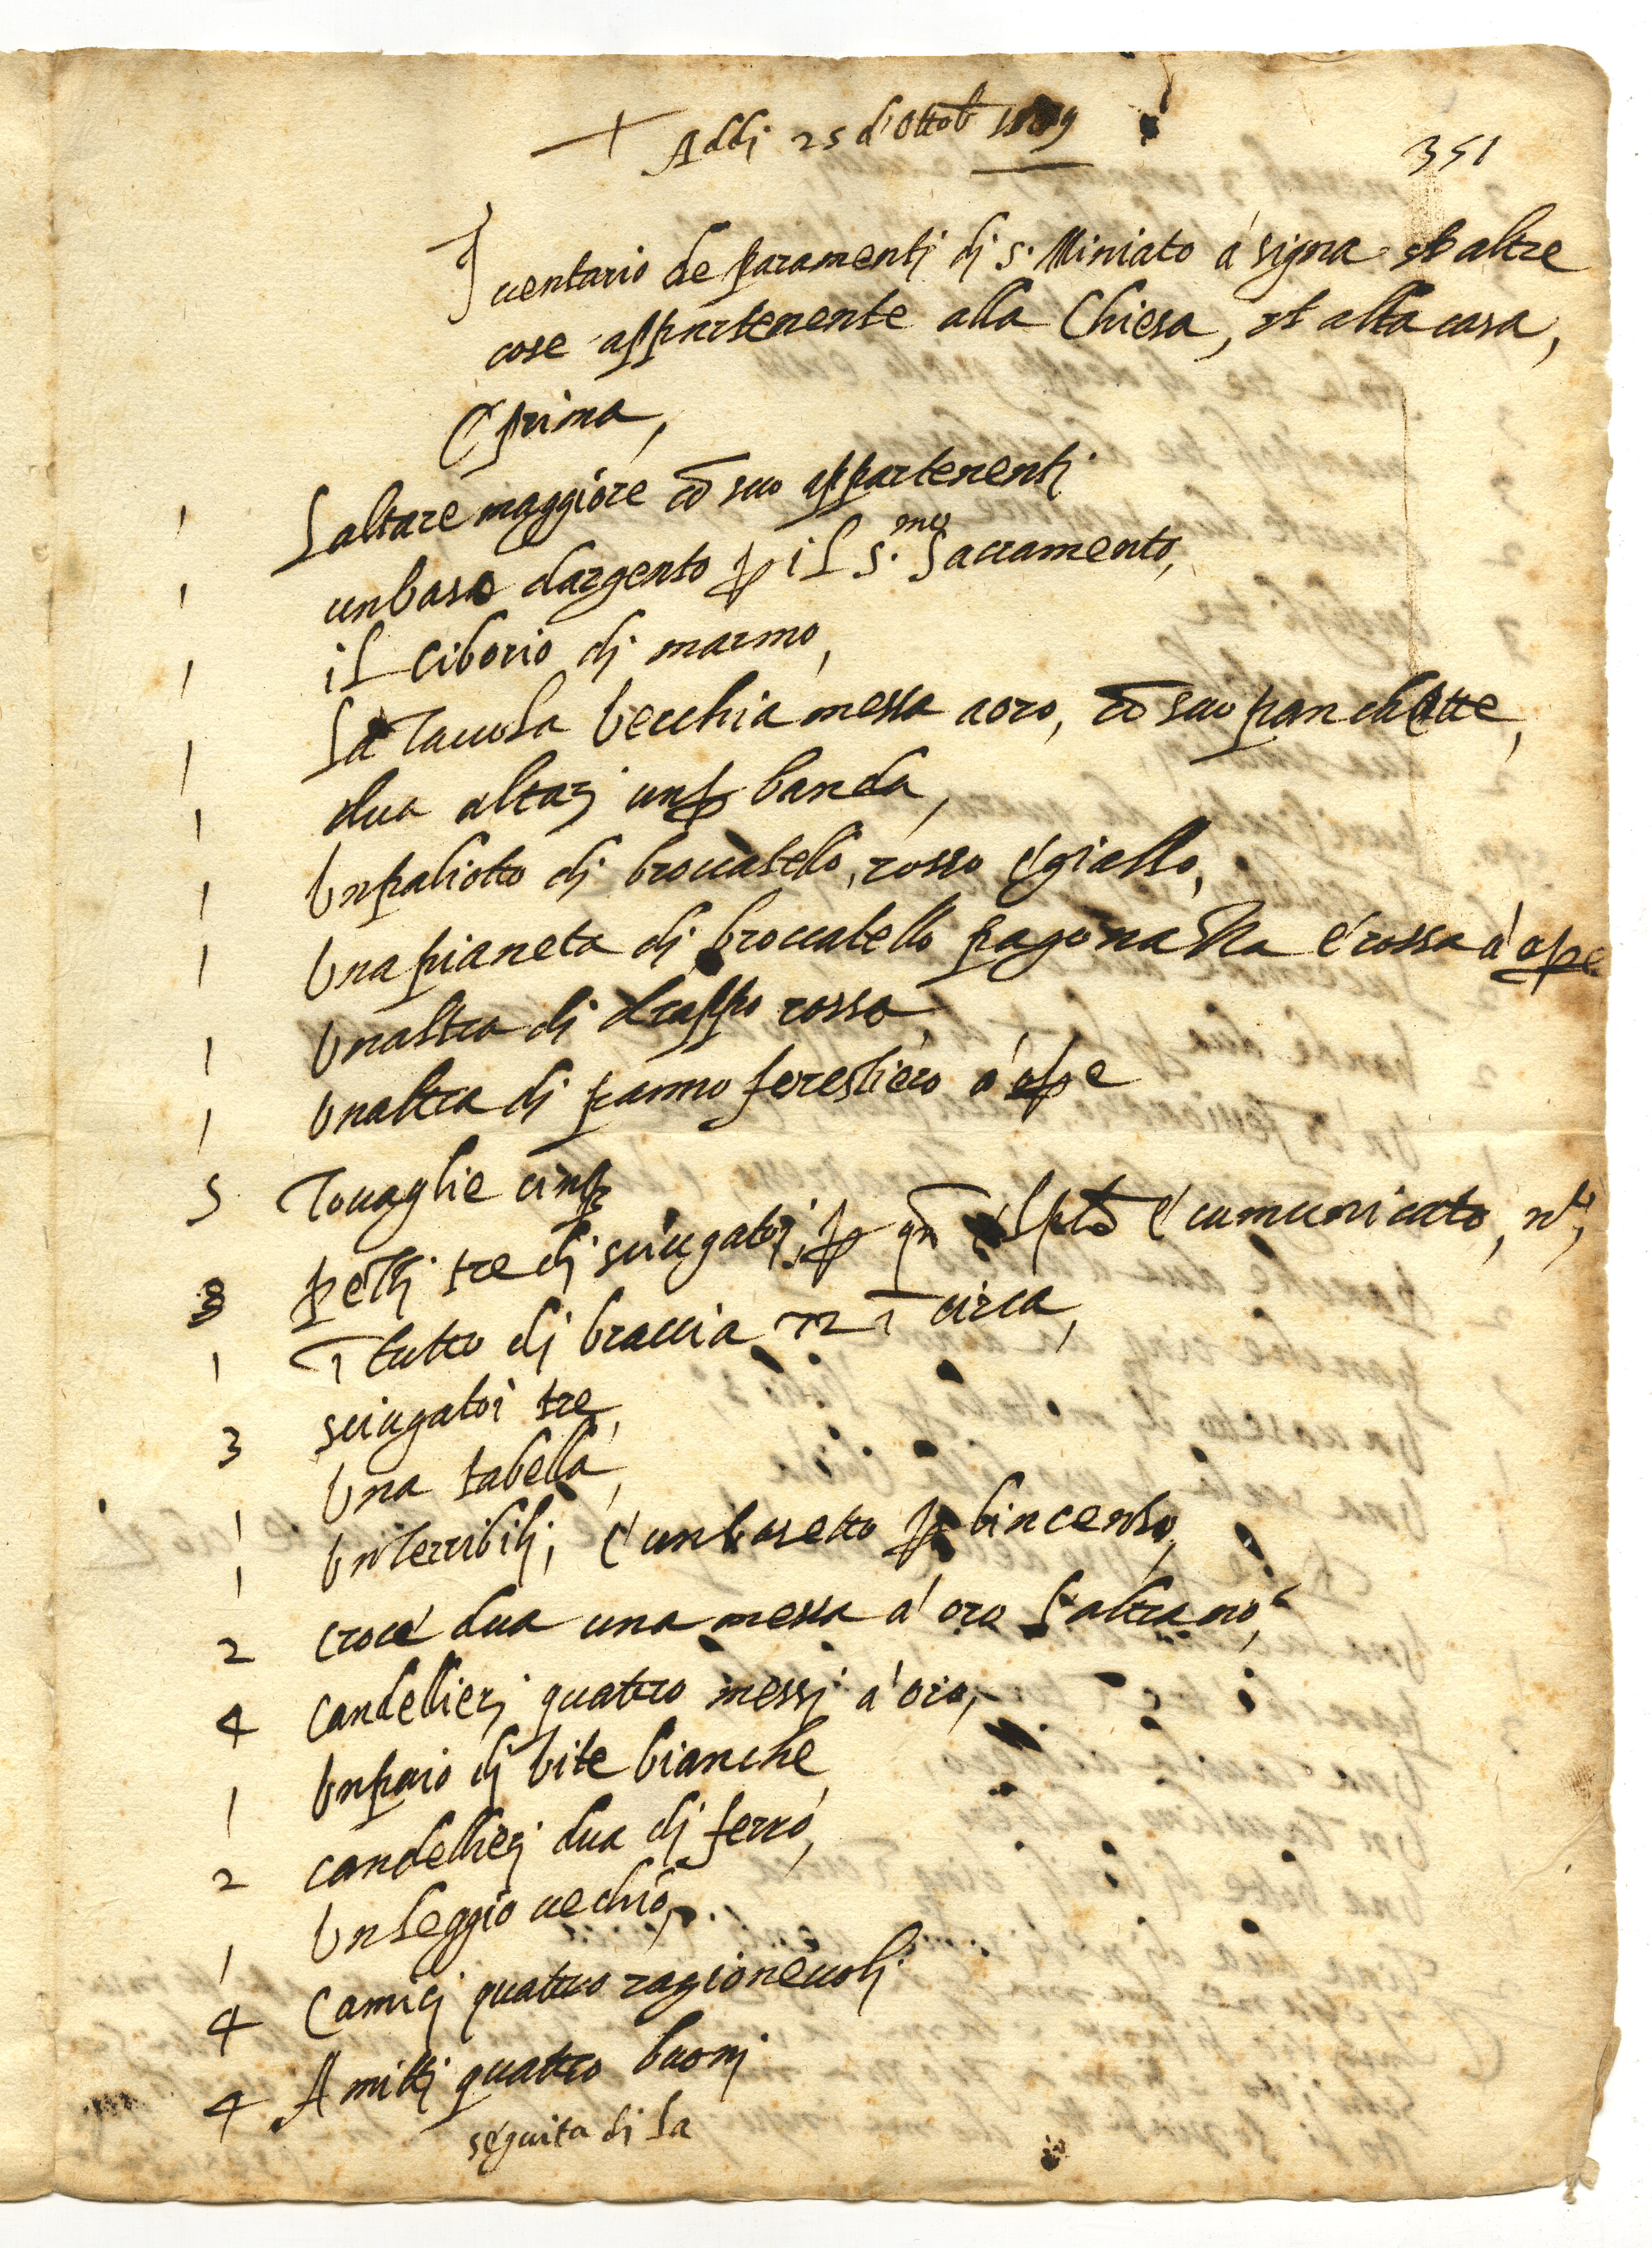 + Addi 25 d'Ottob
351
Inventario de paramenti di S. Miniato à signa et altre
cose appartenente alla Chiesa, et alla casa,
E prima,
1 Laltare maggiore cō suo appartenenti
1 un baso dargento p il S.mo Sacramento,
1 il Ciborio di marmo,
1 La Tauola becchia messa a oro, cō suo panchette,
1 dua altari un p banda,
1 Un paliotto di broccatello, rosso e giallo,
1 Una pianeta di broccatello pagonazza e rossa à ope
1 Unaltra di drappo rossa
1 Unaltra di panno forestiero à ope
5 Touaglie cinq
3 pezzi tre di sciugatoi, p qn il pto e cumunicato,
1 ī tutto di braccia circa,
3 sciugatoi tre,
1 Una tabella,
1 Un Terribili, e un basetto p lincenso,
2 croce dua una messa à oro l'altra nò,
4 Candellieri quattro messi à oro,
1 Un paio di bite bianche,
2 candellieri dua di ferro,
1 Un leggio uechio,
4 Camici quattro ragioneuoli
4 Amitti quattro buoni
séguita di la